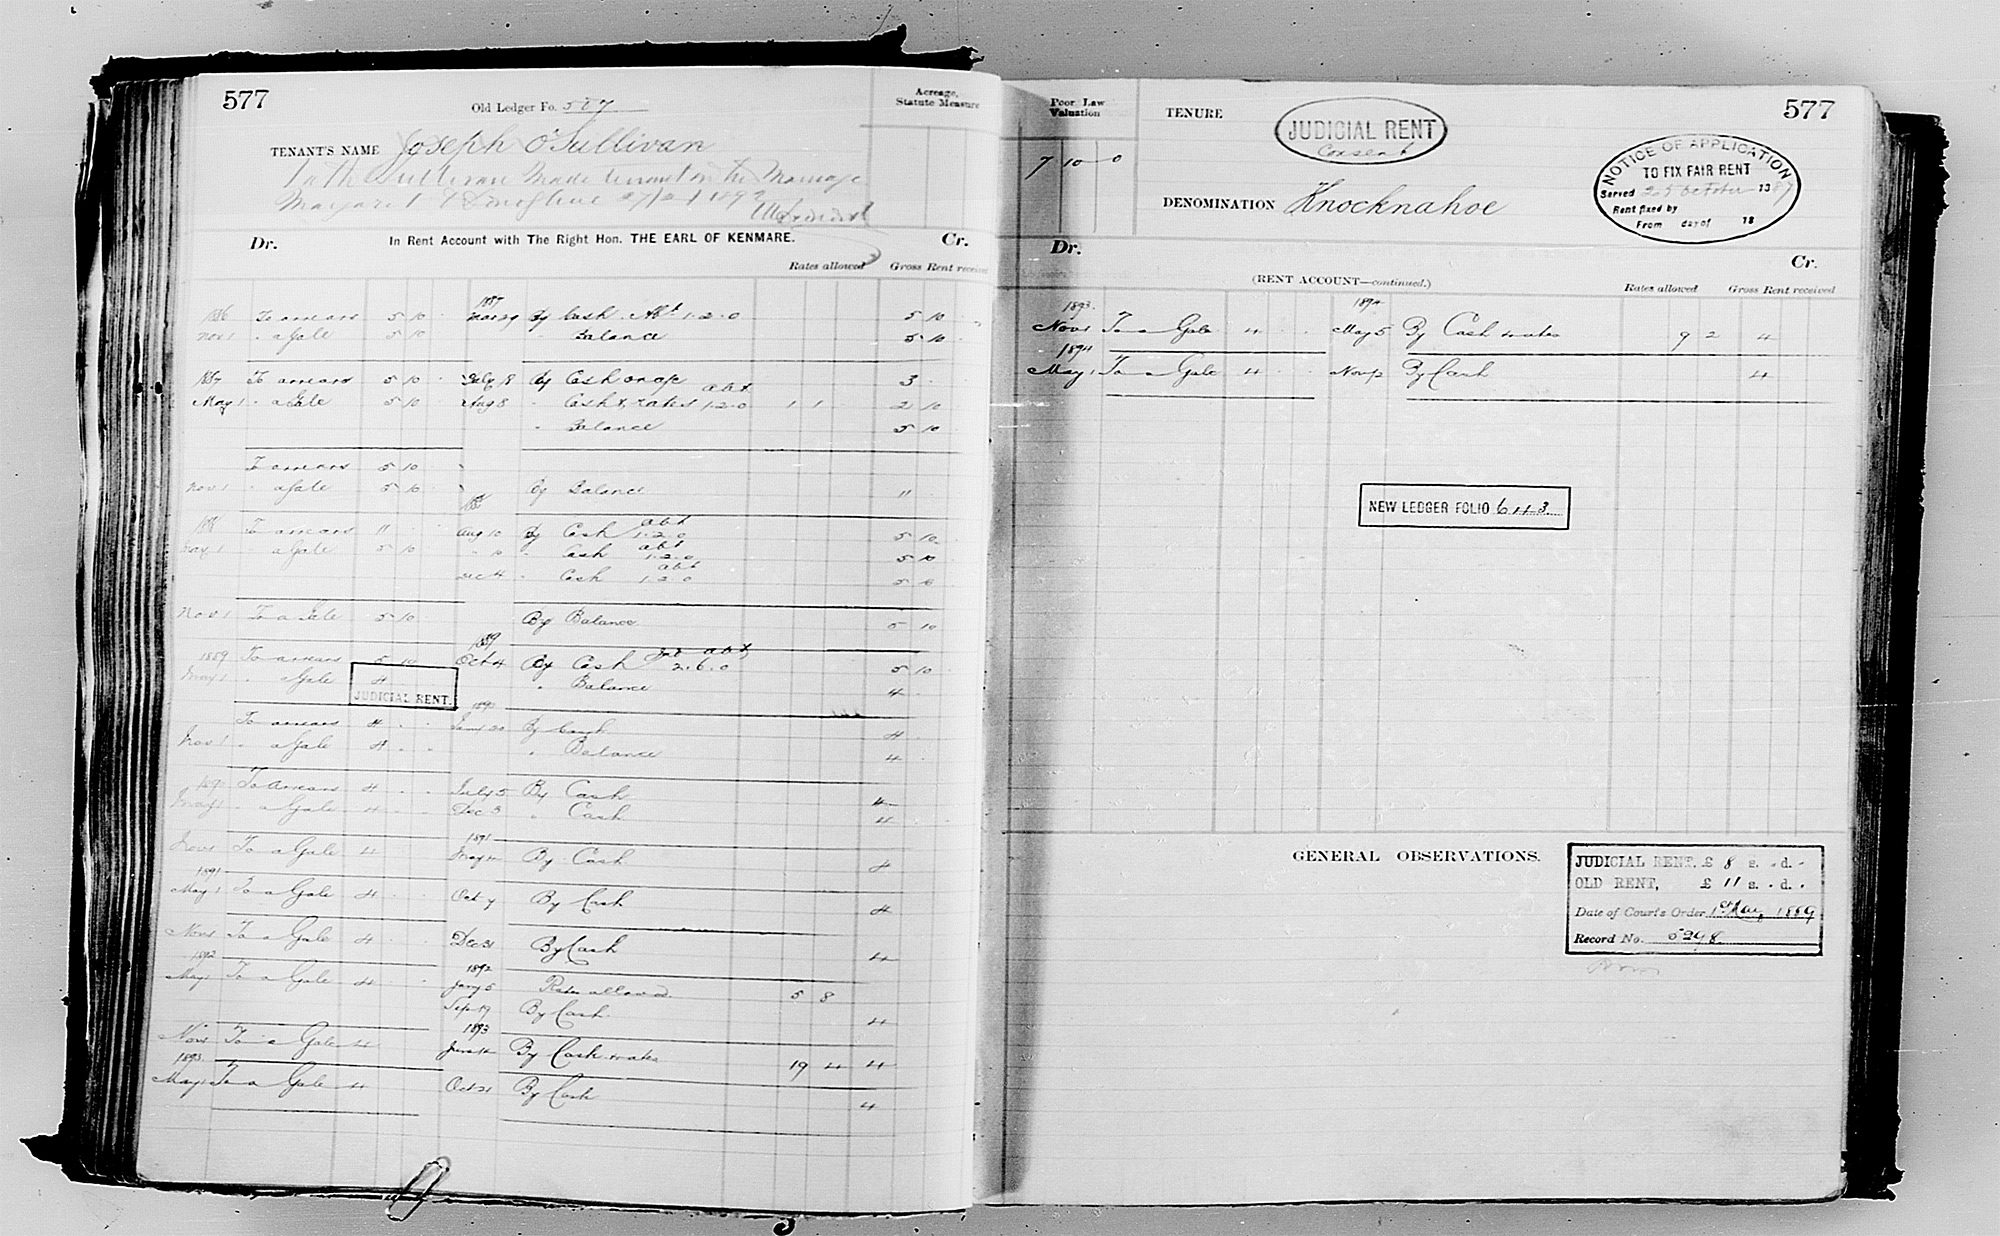 577
Old Ledger Fo. 507
Acreage,
Statute Measure
TENANT'S NAME Joseph O'Sullivan
Sullivan made tenant on the marriage
Margaret 1892
Dr. In Rent Account with The Right Hon. THE EARL OF KENMARE. Cr.
Rates allowed Gross Rent received
1887
1886 To arrears 5 10 By Cash Abt 1.2.0 5 10
Nov 1 " a Gale 5 10 " Balance 5 10
1887 To arrears 5 10 July 18 By Cash on a/c 3
May 1 " a Gale 5 10 Aug 8 " Cash & rates abt 1.2.0 1 1 2 10
" Balance 5 10
To arrears 5 10
Nov 1 " a Gale 5 10 By Balance 11
1888
1888 To arrears 11 Aug 10 By Cash abt 1.2.0 5 10
May 1 " a Gale 5 10 " 10 " Cash abt 1.2.0 5 10
Dec 4 " Cash abt 1.2.0 5 10
Nov 1 To a Gale 5 10 By Balance 5 10
1889
1889 To arrears 5 10 Oct 4 By Cash abt 2.6.0 5 10
May 1 " a Gale 4 " Balance 4
JUDICIAL RENT.
1890
To arrears 4 By Cash 4
Nov 1 " a Gale 4 " Balance 4
1890 To arrears 4 July 5 By Cash 4
May 1 " a Gale 4 Dec 3 " Cash 4
1891
Nov 1 To a Gale 4 May By Cash 4
1891
May 1 To a Gale 4 Oct 7 By Cash 4
Nov 1 To a Gale 4 Dec 31 By Cash 4
1892 1892
May 1 To a Gale 4 Jany 5 Rates allowed 5 8
Sep 19 By Cash 4
1893
Nov 1 To a Gale 4 June By Cash & rates 19 4 4
1893
May 1 To a Gale 4 Oct 21 By Cash 4
Poor Law
Valuation
7 10 0
TENURE
JUDICIAL RENT
Consent
577
NOTICE OF APPLICATION
TO FIX FAIR RENT
Served 25 October 1887
Rent fixed by
From day of 18
DENOMINATION Knocknahoe
Dr. Cr.
(RENT ACCOUNT—continued.)
Rates allowed Gross Rent received
1893 1894
Nov 1 To a Gale 4 May 5 By Cash & rates 9 2 4
1894
May 1 To a Gale 4 Nov 12 By Cash 4
NEW LEDGER FOLIO 643
GENERAL OBSERVATIONS.
JUDICIAL RENT, £ 8 s. - d. -
OLD RENT, £ 11 s. - d. -
Date of Court's Order 1st May 1889
Record No. 5298